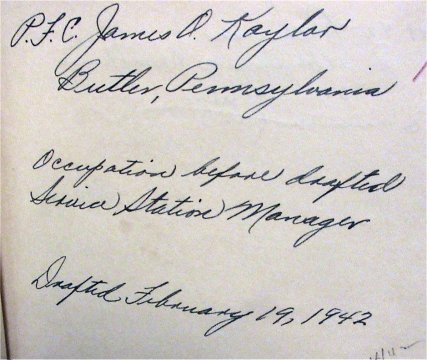 P.F.C. James O. Kaylor
Butler, Pennsylvania
Occupation before drafted
Service Station Manager
Drafted February 19, 1942